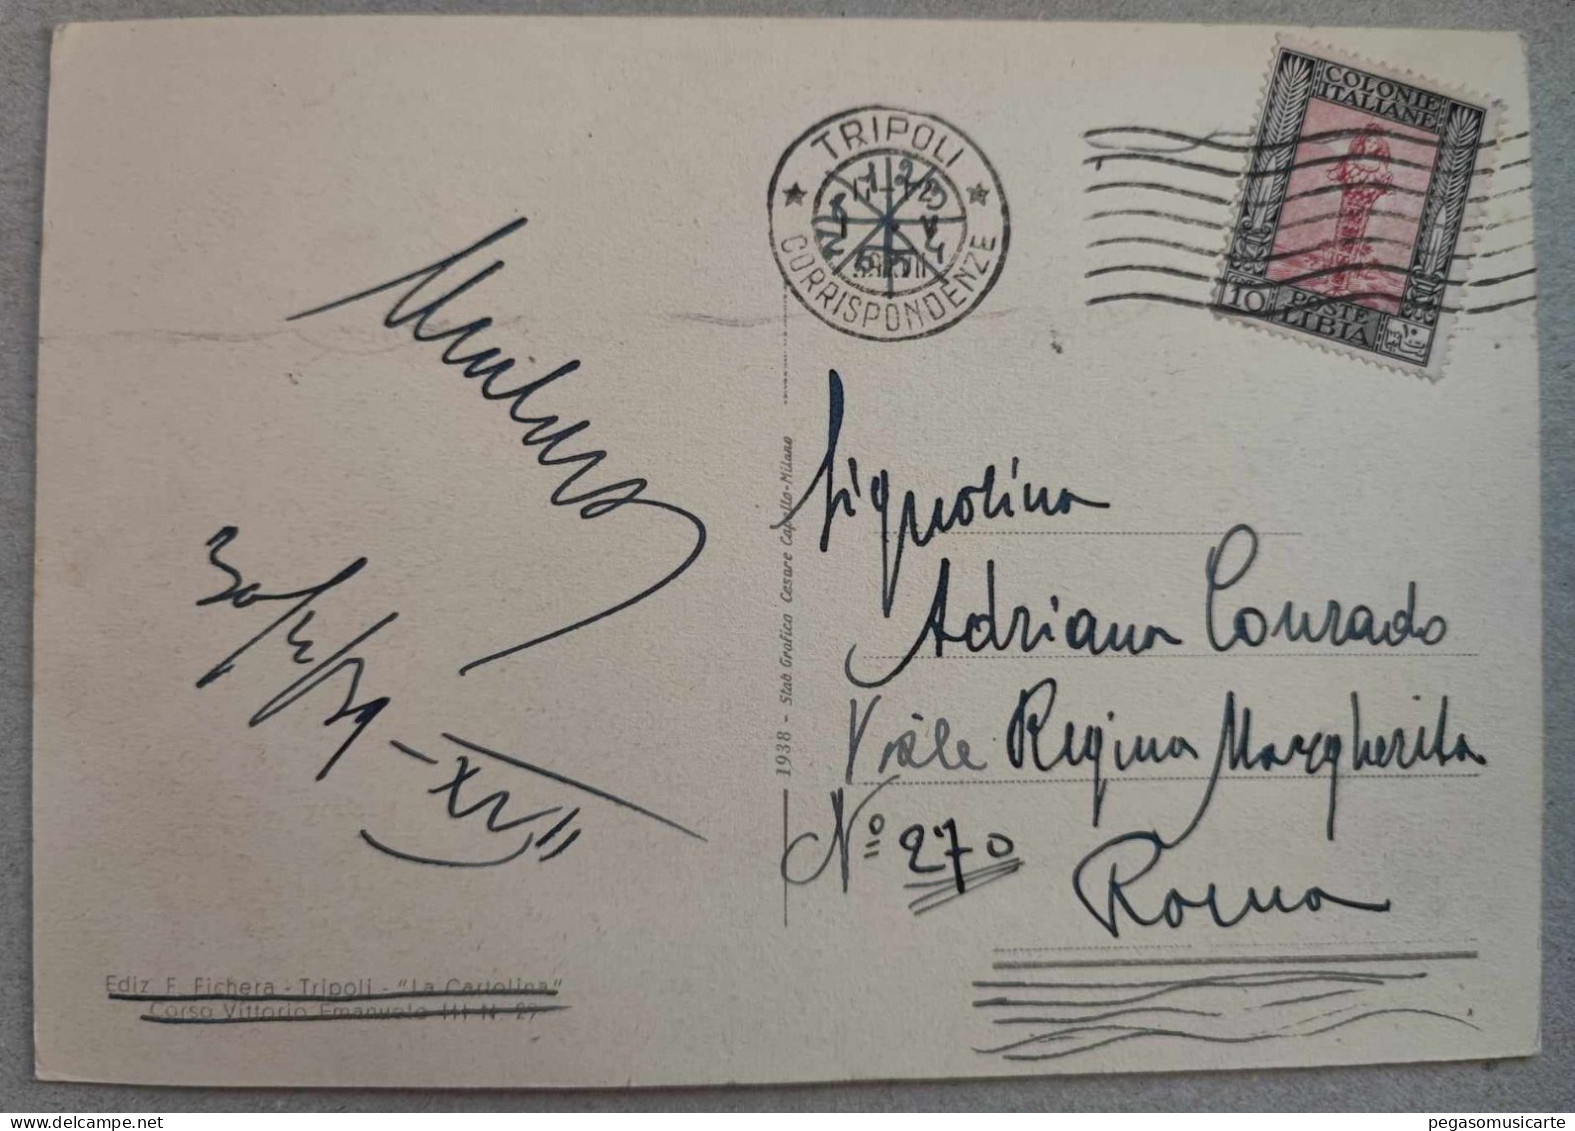 TRIPOLI
CORRISPONDENZE
COLONIE
ITALIANE
10 POSTE
LIBIA
30/
1938 - Stab Grafico Cesare Capello-Milano
Signorina
Adriana Conrado
Viale Regina Margherita
N° 270
Roma
Ediz. F. Fichera - Tripoli - "La Cartolina"
Corso Vittorio Emanuele III N. 27
pegasomusicarte
www.delcampe.net